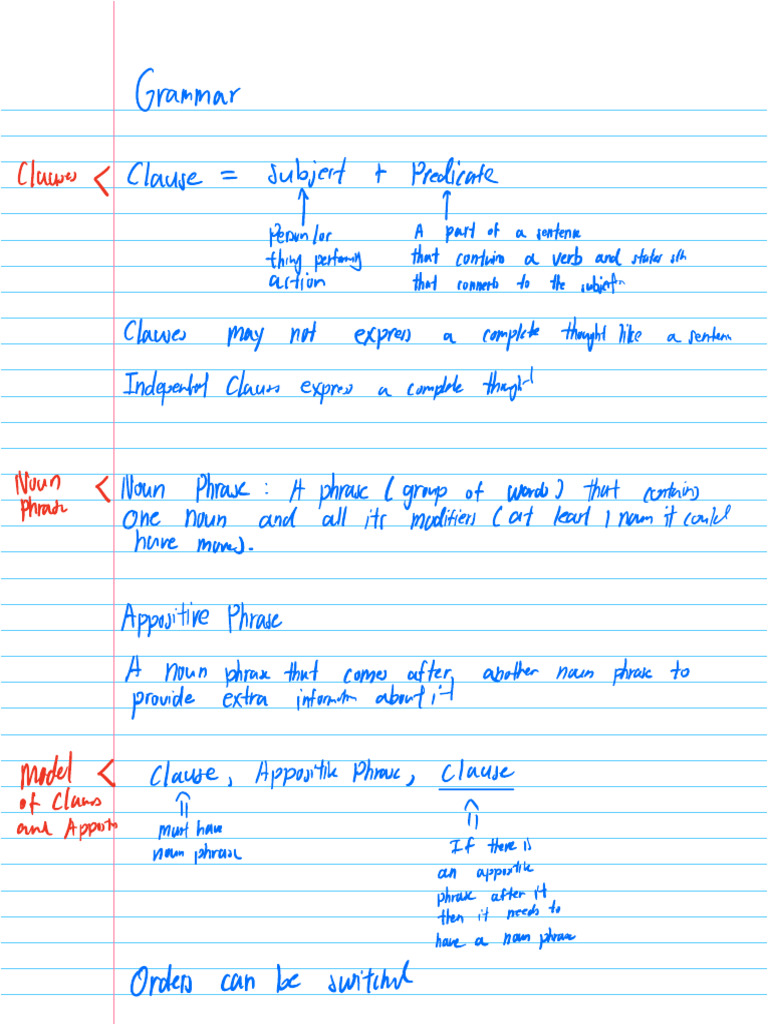 Grammar
Clauses < Clause = Subject + Predicate
Person/or
thing performing
action
A part of a sentence
that contains a verb and states sth
that connects to the subject
Clauses may not express a complete thought like a sentence
Independent Clauses express a complete thought
Noun
Phrase
< Noun Phrase : A phrase (group of words) that contains
one noun and all its modifiers (at least 1 noun it could
have more).
Appositive Phrase
A noun phrase that comes after another noun phrase to
provide extra information about it
Model
of Clauses
and Appositive
< Clause, Appositive Phrase, Clause
must have
noun phrase
If there is
an appositive
phrase after it
then it needs to
have a noun phrase
Orders can be switched